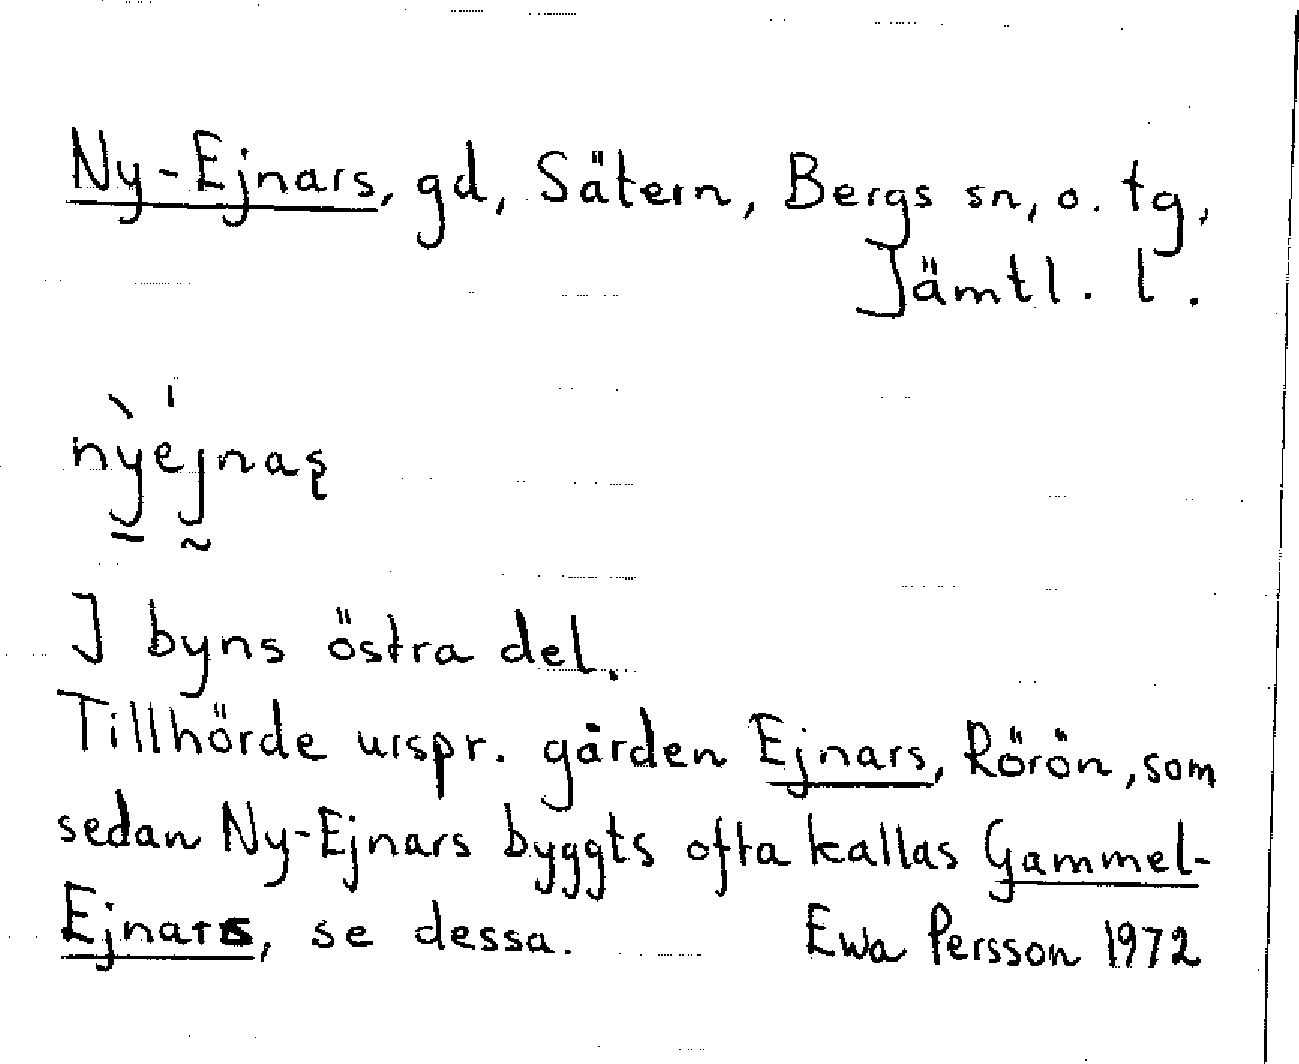 Ny-Ejnars, gd, Sätern, Bergs sn, o. tg,
Jämtl. l.
nỳéjnaş
I byns östra del.
Tillhörde urspr. gården Ejnars, Rörön, som
sedan Ny-Ejnars byggts ofta kallas Gammel-
Ejnars, se dessa. Ewa Persson 1972